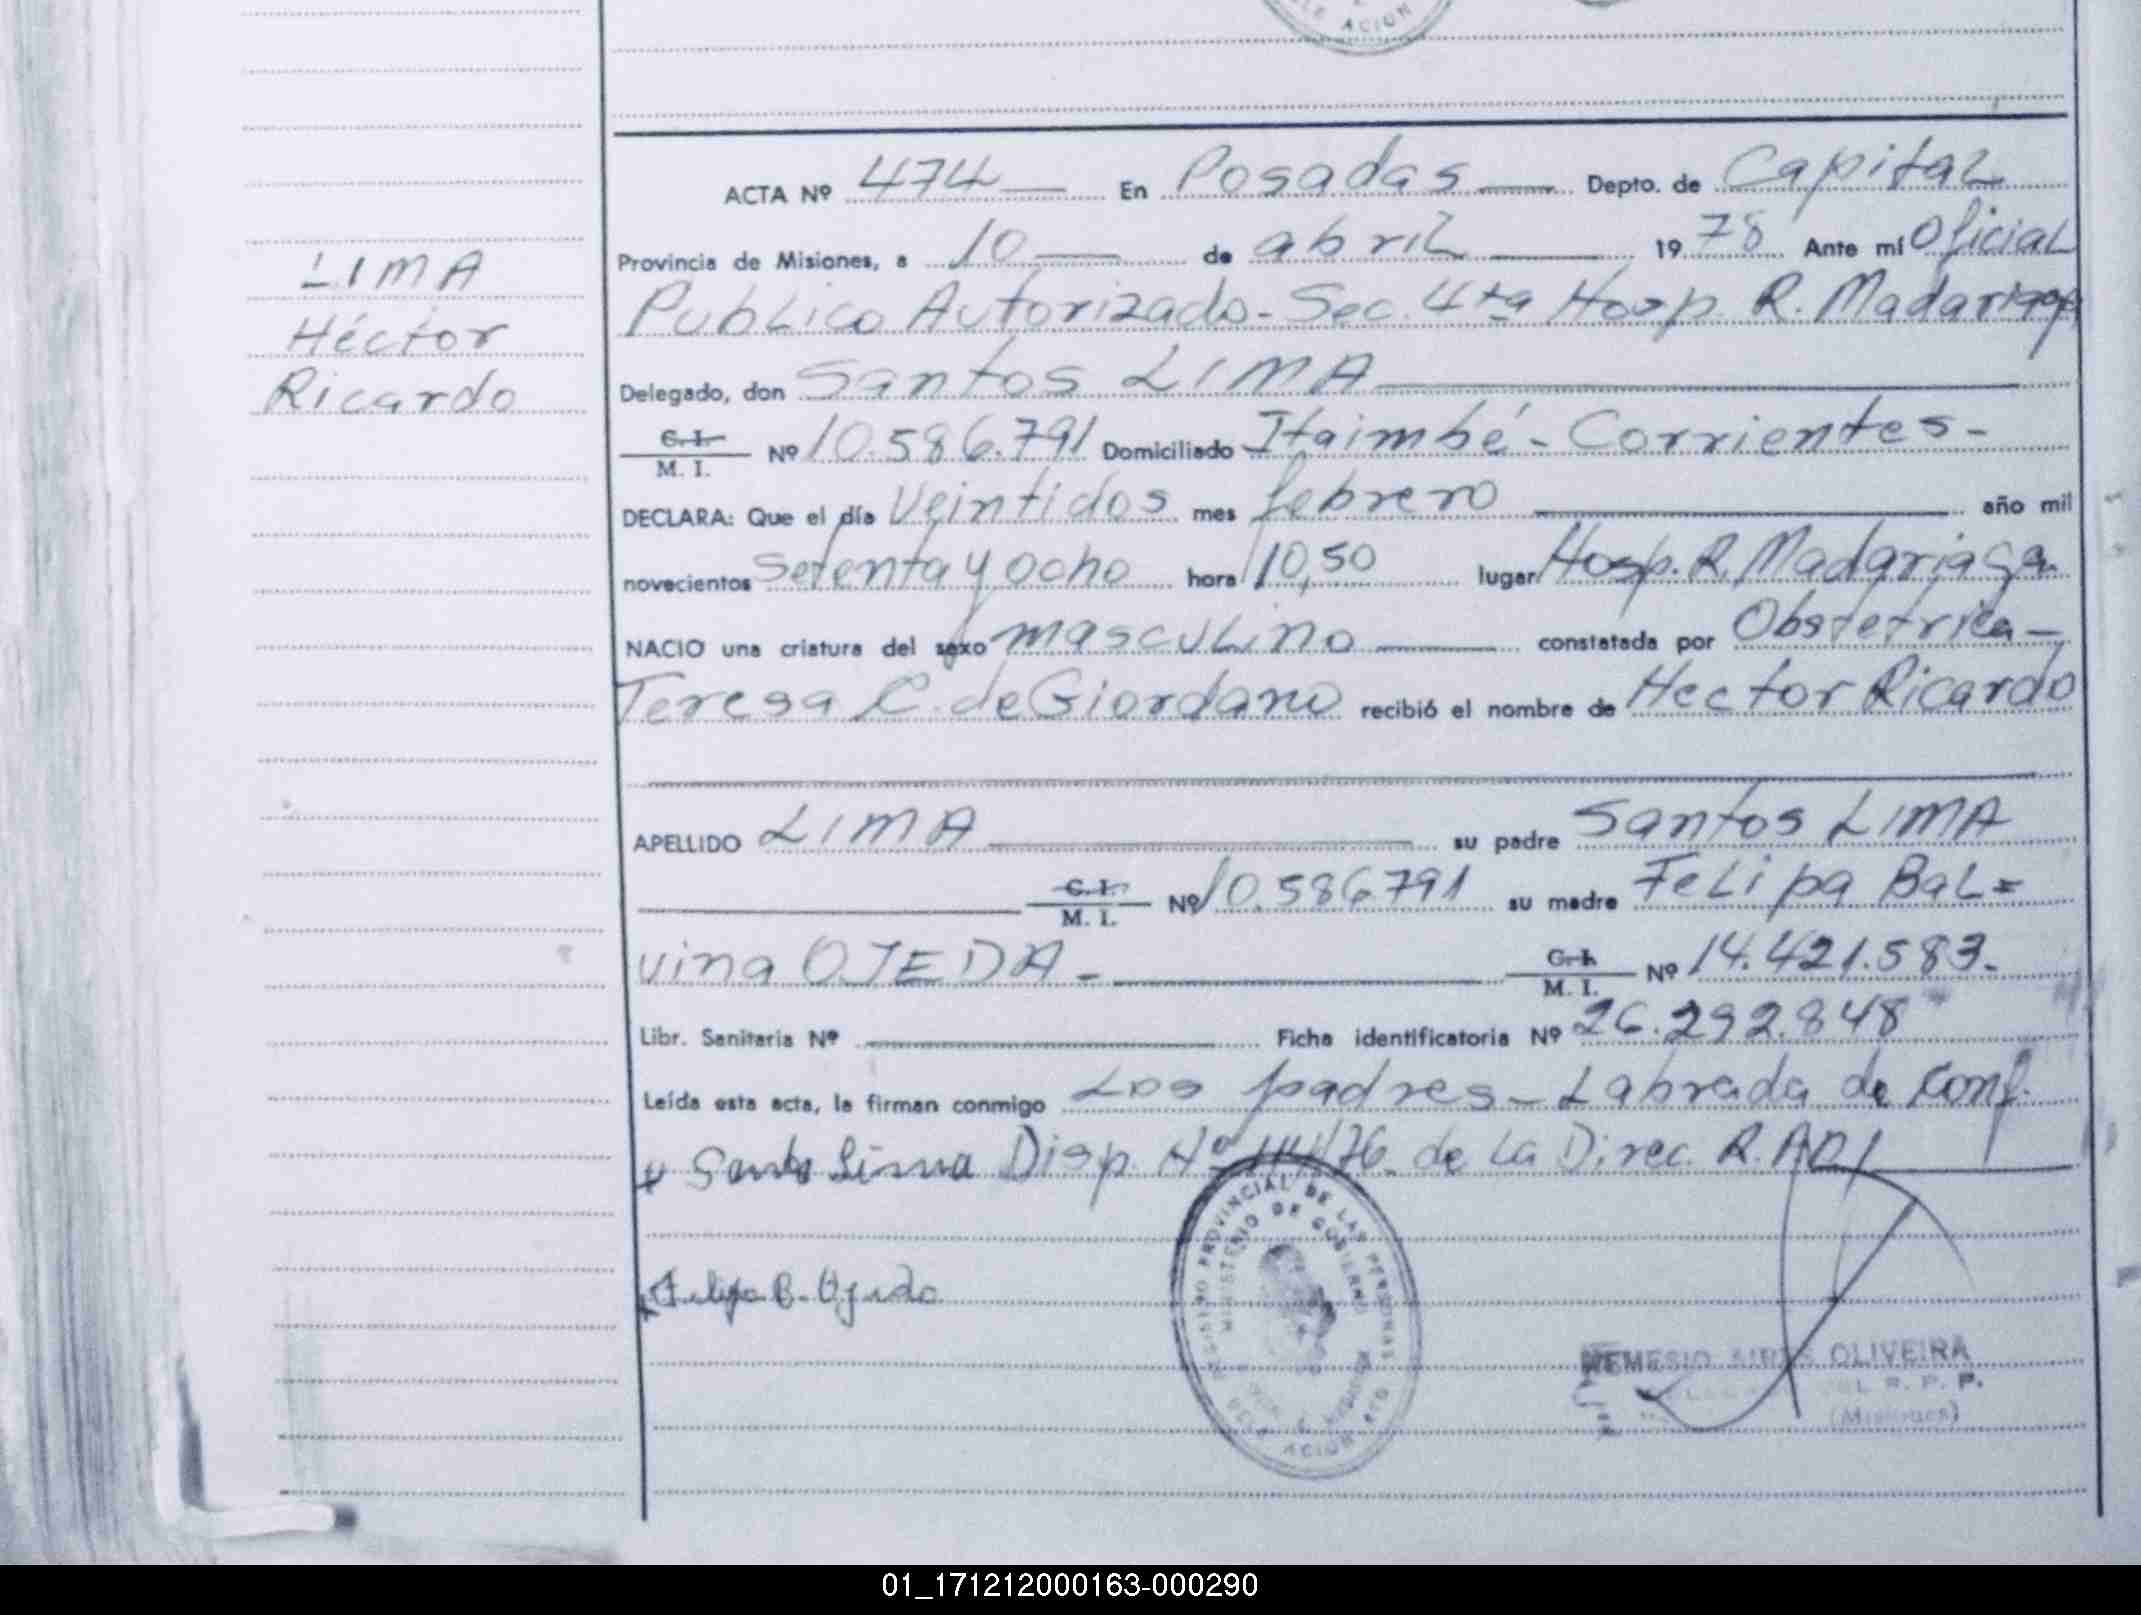 LE ACION
ACTA Nº 474 En Posadas Depto. de Capital
Provincia de Misiones, a 10 de abril 1978 Ante mí Oficial
Publico Autorizado- Sec. 4ta Hosp. R. Madariaga
LIMA
Héctor
Ricardo
Delegado, don Santos LIMA
C. I.
M. I. Nº 10.586.791 Domiciliado Itaimbé - Corrientes -
DECLARA: Que el día Veintidos mes febrero año mil
novecientos Setenta y Ocho hora 10,50 lugar Hosp. R. Madariaga
NACIO una criatura del sexo masculino constatada por Obstetrica -
Teresa C. de Giordano recibió el nombre de Hector Ricardo
APELLIDO LIMA su padre Santos LIMA
C. I.
M. I. Nº 10.586791 su madre Felipa Bal=
vina OJEDA - C. I.
M. I. Nº 14.421.583.
Libr. Sanitaria Nº Ficha identificatoria Nº 26.292.848
Leída esta acta, la firman conmigo Los padres - Labrada de Conf.
Disp. Nº de La Direc. R.
REGISTRO PROVINCIAL DE LAS PERSONAS
MINISTERIO DE GOBIERNO
NEMESIO OLIVEIRA
R. P. P.
(Misiones)
01_171212000163-000290